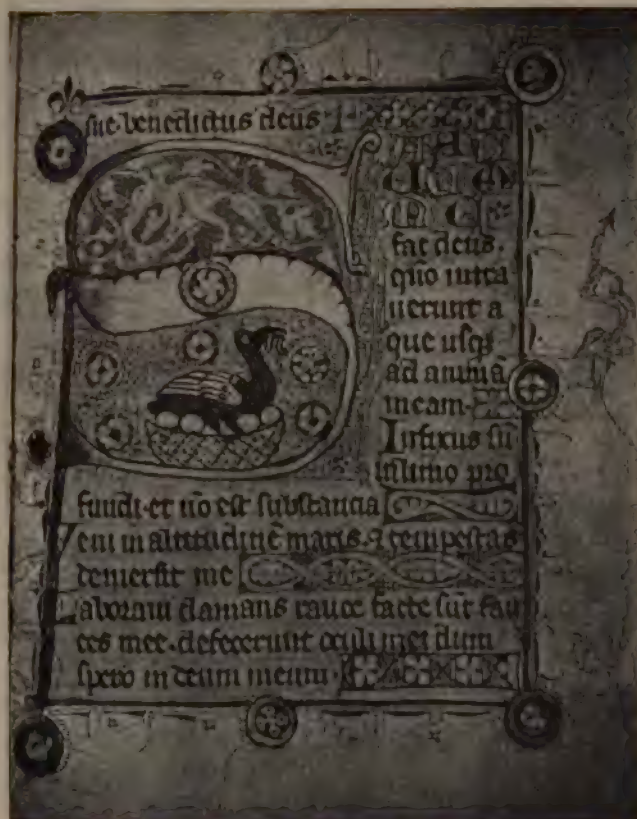 sue·benedictus deus·
S
fac deus·
quō intra
uerunt a
que usqꝫ
ad animā
meam·
Infixus sū
limo pro
fundi·et nō est substancia
Veni in altitudinē maris·⁊ tempestas
demersit me
Laboraui clamans rauce facte sūt fau
ces mee·defecerunt oculi mei dum
spero in deum meum·